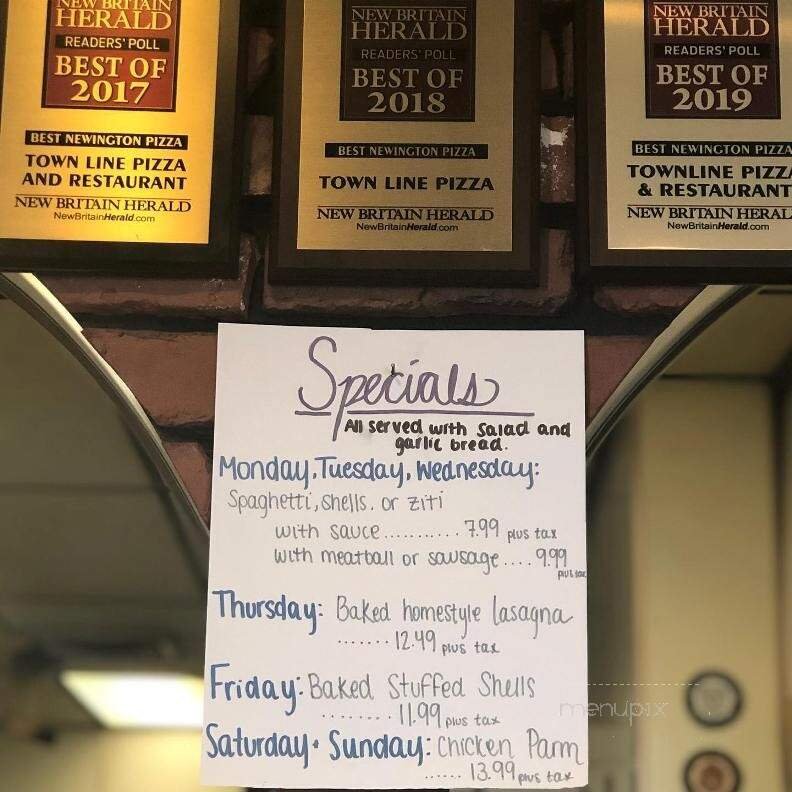 NEW BRITAIN
HERALD
READERS' POLL
BEST OF
2017
BEST NEWINGTON PIZZA
TOWN LINE PIZZA
AND RESTAURANT
NEW BRITAIN HERALD
NewBritainHerald.com
NEW BRITAIN
HERALD
READERS' POLL
BEST OF
2018
BEST NEWINGTON PIZZA
TOWN LINE PIZZA
NEW BRITAIN HERALD
NewBritainHerald.com
NEW BRITAIN
HERALD
READERS' POLL
BEST OF
2019
BEST NEWINGTON PIZZA
TOWNLINE PIZZ
& RESTAURANT
NEW BRITAIN HERAL
NewBritainHerald.com
Specials
All served with salad and
garlic bread.
Monday, Tuesday, Wednesday:
Spaghetti, shells, or ziti
with sauce........... 7.99 plus tax
with meatball or sausage.... 9.99
plus tax
Thursday: Baked homestyle lasagna
....... 12.49 plus tax
Friday: Baked Stuffed Shells
........ 11.99 plus tax
Saturday + Sunday: Chicken Parm
...... 13.99 plus tax
menupix